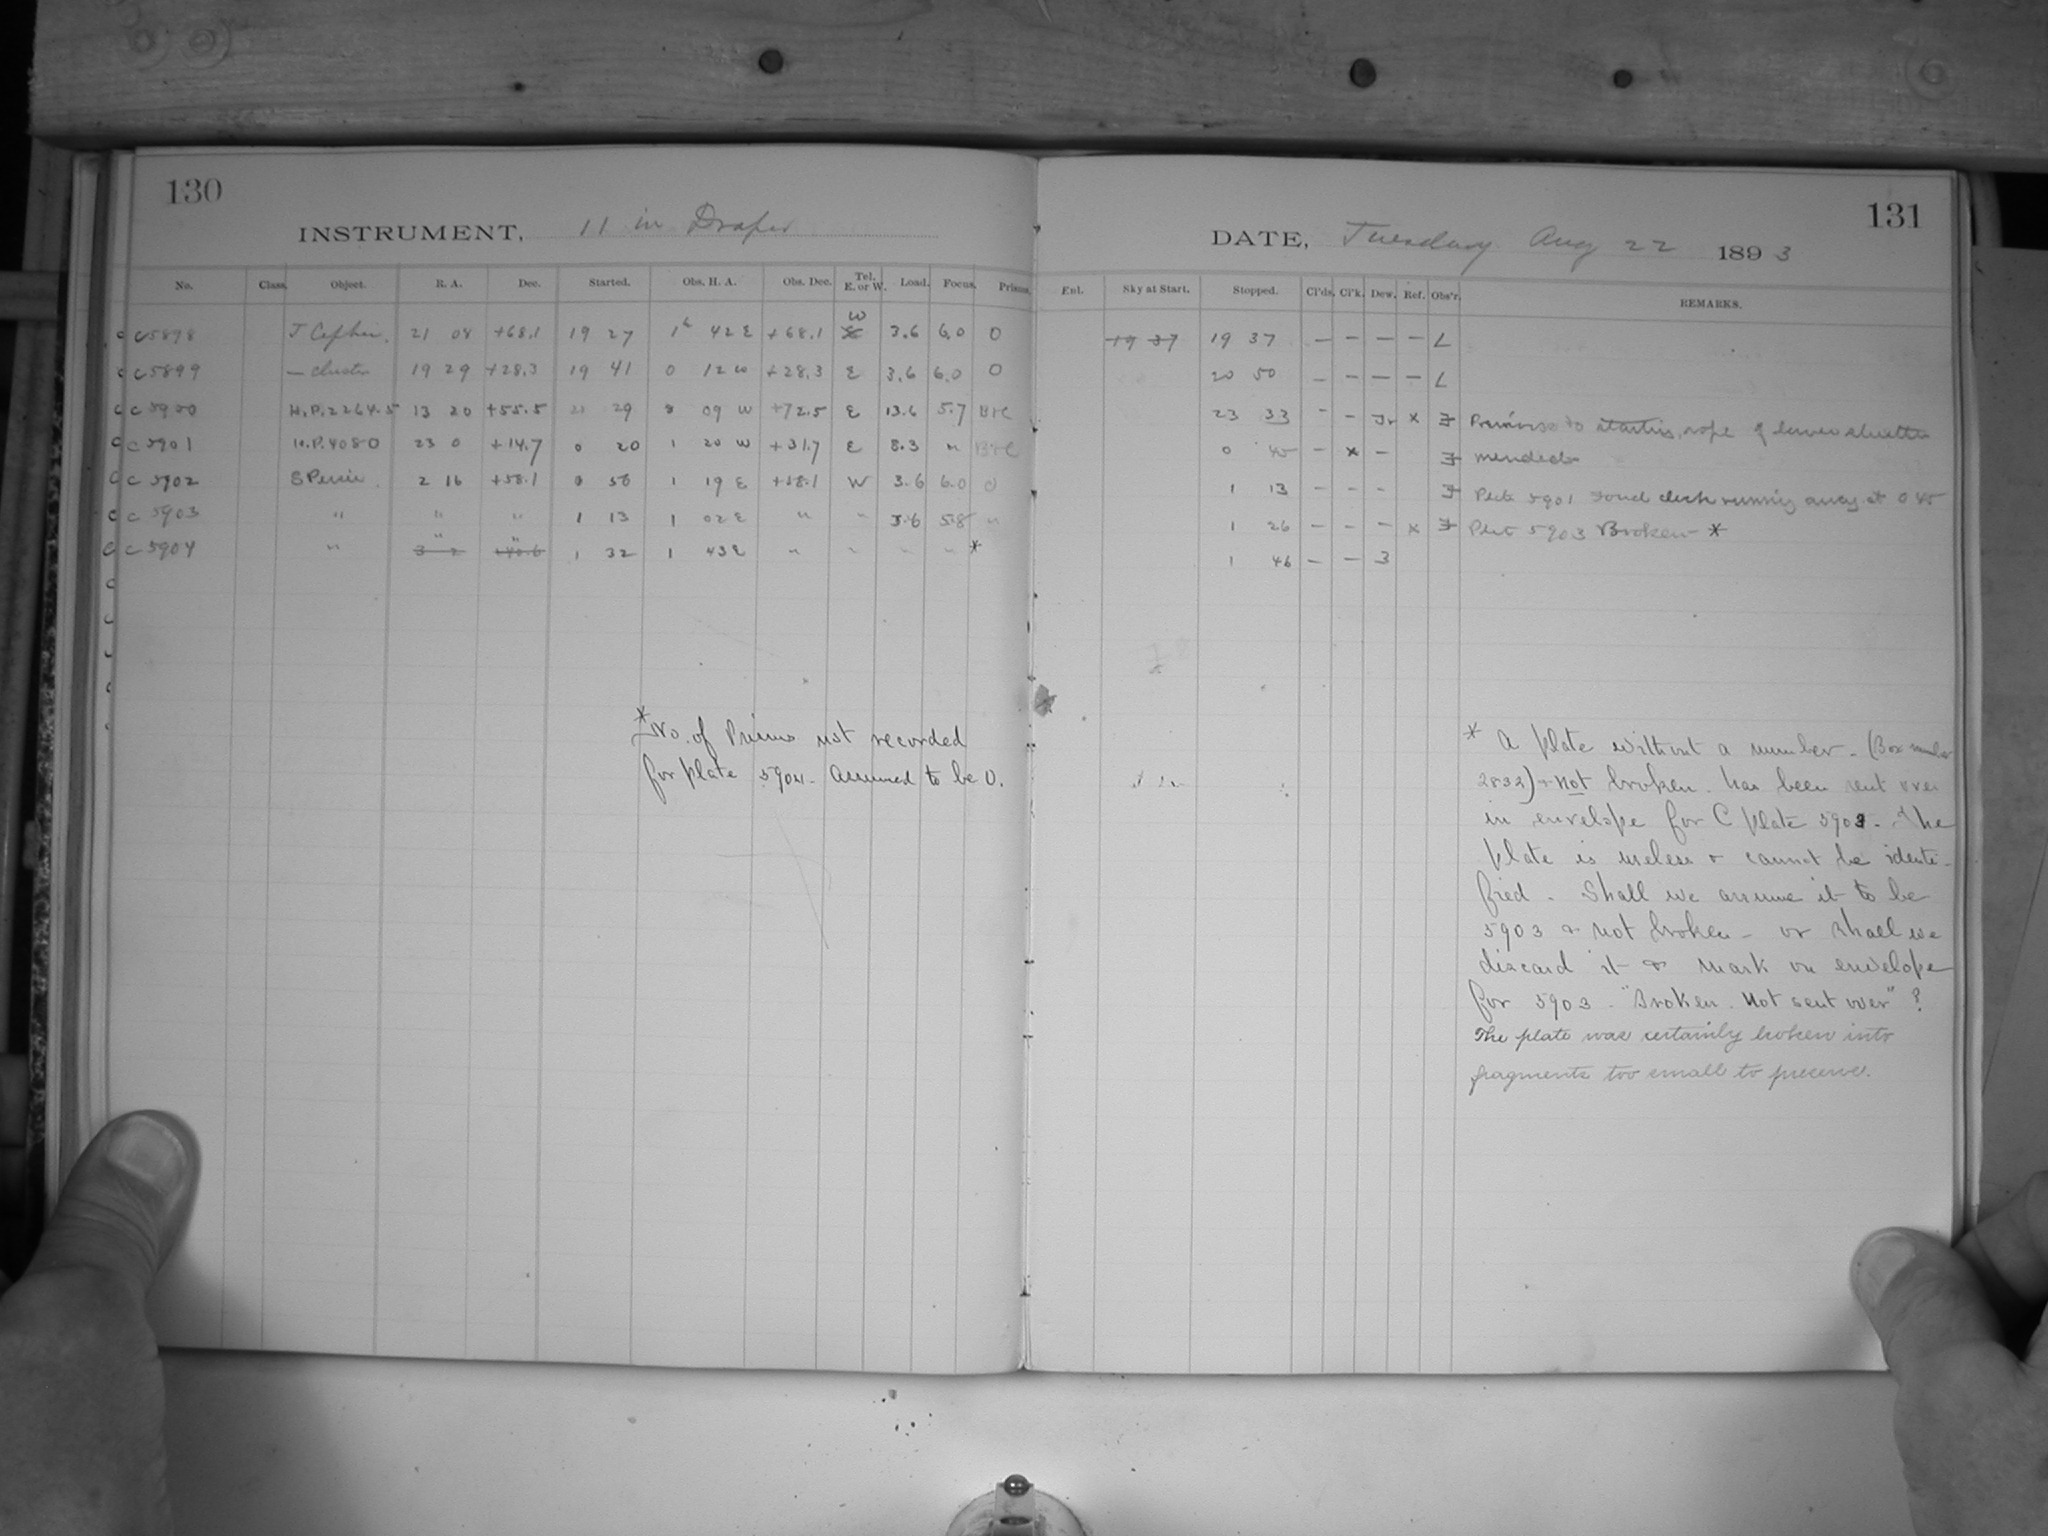 130
INSTRUMENT, 11 in Draper
No. Class. Object. R. A. Dec. Started. Obs. H. A. Obs. Dec. Tel. E. or W. Load. Focus. Prisms.
C 5898 T Cephei. 21 08 +68.1 19 27 1h 42 E +68.1 W 3.6 6.0 0
C 5899 — cluster 19 29 +28.3 19 41 0 12 W +28.3 E 3.6 6.0 0
C 5900 H.P. 2264.5 13 20 +55.5 29 09 W +72.5 E 13.6 5.7 B+C
C 5901 H.P. 4080 23 0 +14.7 0 20 1 20 W +31.7 E 8.3 " B+C
C 5902 S Persei 2 16 +58.1 0 56 1 19 E +58.1 W 3.6 6.0 0
C 5903 " " " 1 13 1 02 E " " 3.6 5.8 "
C 5904 " " " 1 32 1 43 E " " " " " *
* No. of Prisms not recorded
for plate 5904. Assumed to be 0.
131
DATE, Tuesday Aug 22 1893
Ent. Sky at Start. Stopped. Cl'ds. Cl'k. Dew. Ref. Obs'r. REMARKS.
19 37 19 37 — — — — L
20 50 — — — — L
23 33 - - x Previous to starting, rope of lower shutter
0 45 - x - mended
1 13 - - - Plate 5901 Found clock running away at 0 45
1 26 — — — x Plate 5903 Broken *
1 46 — — 3
* A plate without a number - (Box number
2832) + not broken has been sent over
in envelope for C plate 5903. The
plate is useless + cannot be identi-
fied. Shall we assume it to be
5903 + not broken - or shall we
discard it + mark on envelope
for 5903 - "Broken. Not sent over"?
The plate was certainly broken into
fragments too small to preserve.